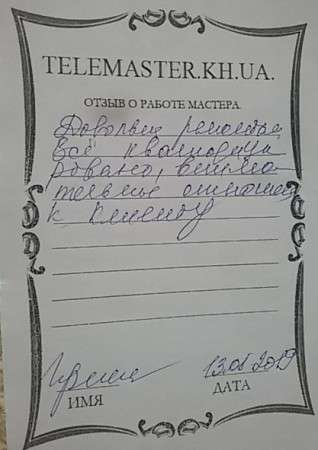 TELEMASTER.KH.UA.
ОТЗЫВ О РАБОТЕ МАСТЕРА.
Довольны ремонтом
Всё квалифици
ровано, внима
тельное отношение
к клиенту
13.01.2019
ИМЯ
ДАТА